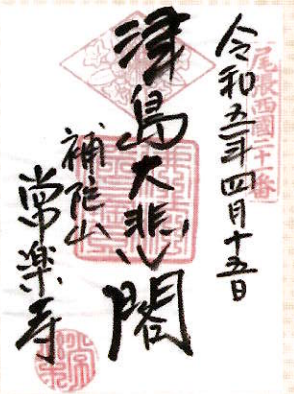 尾張西國二十一番
令和五年四月十五日
津島大悲閣
補陀山
常楽寺